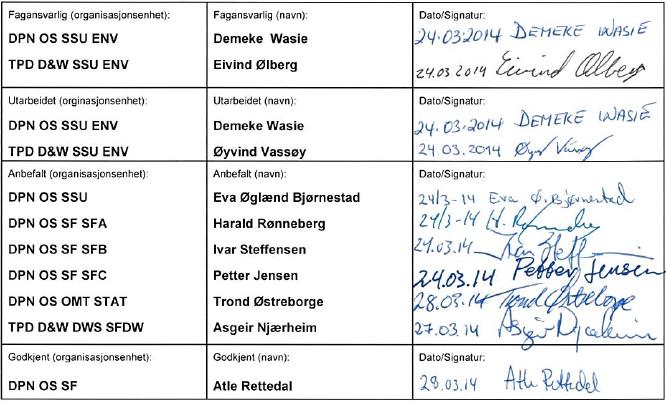 Fagansvarlig (organisasjonsenhet): Fagansvarlig (navn): Dato/Signatur:
DPN OS SSU ENV Demeke Wasie 24.03.2014 DEMEKE WASIE
TPD D&W SSU ENV Eivind Ølberg 24.03 2014 Eivind Ølberg
Utarbeidet (orginasjonsenhet): Utarbeidet (navn): Dato/Signatur:
DPN OS SSU ENV Demeke Wasie 24.03.2014 DEMEKE WASIE
TPD D&W SSU ENV Øyvind Vassøy 24 03.2014
Anbefalt (organisasjonsenhet): Anbefalt (navn): Dato/Signatur:
DPN OS SSU Eva Øglænd Bjørnestad 24/3-14 Eva Ø. Bjørnestad
DPN OS SF SFA Harald Rønneberg 24/3-14 H.
DPN OS SF SFB Ivar Steffensen 24.03.14
DPN OS SF SFC Petter Jensen 24.03.14 Petter Jensen
DPN OS OMT STAT Trond Østreborge 28.03.14 Trond Østreborge
TPD D&W DWS SFDW Asgeir Njærheim 27.03.14 Asgeir Njærheim
Godkjent (organisasjonsenhet): Godkjent (navn): Dato/Signatur:
DPN OS SF Atle Rettedal 28.03.14 Atle Rettedal